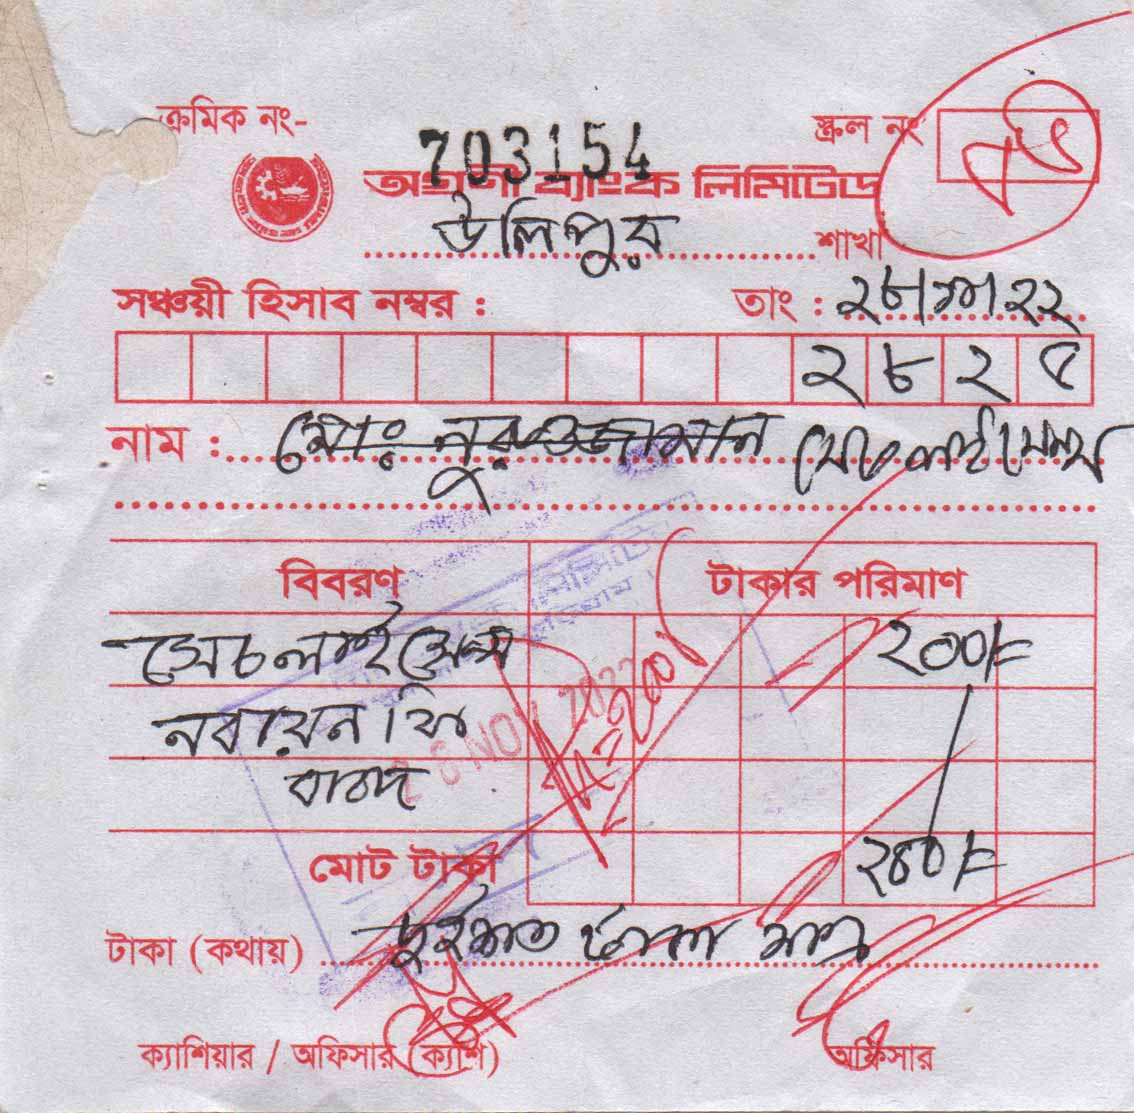 ক্রমিক নং-
703154
স্ক্রল নং
অগ্রণী ব্যাংক লিমিটেড
উলিপুর শাখা
সঞ্চয়ী হিসাব নম্বর : তাং : ২৮/১১/২২
২৮২৫
নাম : মোঃ নুরুজ্জামান
বিবরণ টাকার পরিমাণ
সেচ লাইসেন্স ২০০/=
নবায়ন ফি
বাবদ
28 NOV 2022
মোট টাকা ২০০/=
টাকা (কথায়) দুইশত টাকা মাত্র
ক্যাশিয়ার / অফিসার (ক্যাশ) অফিসার